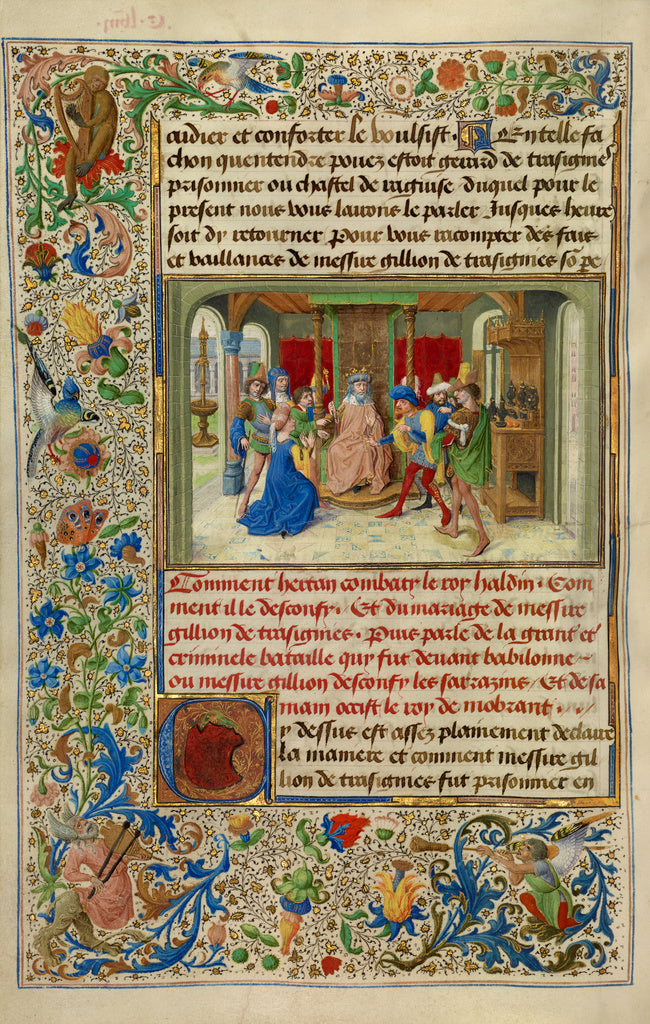 C. lviij.
audier et conforter le voulsist. En telle fa
chon quentendre pouez estoit gerard de trasignies
prisonnier ou chastel de ragiuse. Duquel pour le
present nous vous lairons le parler Jusques heure
soit dy retourner. Pour vous racompter des fais
et vaillances de messire gillion de trasignies so pe
Comment hertan combaty le roy haldin. Com
ment il le desconfy. Et du mariage de messire
gillion de trasignies. Puis parle de la grant et
criminele bataille quy fut deuant babilonne
ou messire gillion desconfy les sarrazins. Et de sa
main occist le roy de mobrant.
Cy dessus est assez plainement declaire
la maniere et comment messire gil
lion de trasignies fut prisonnier en